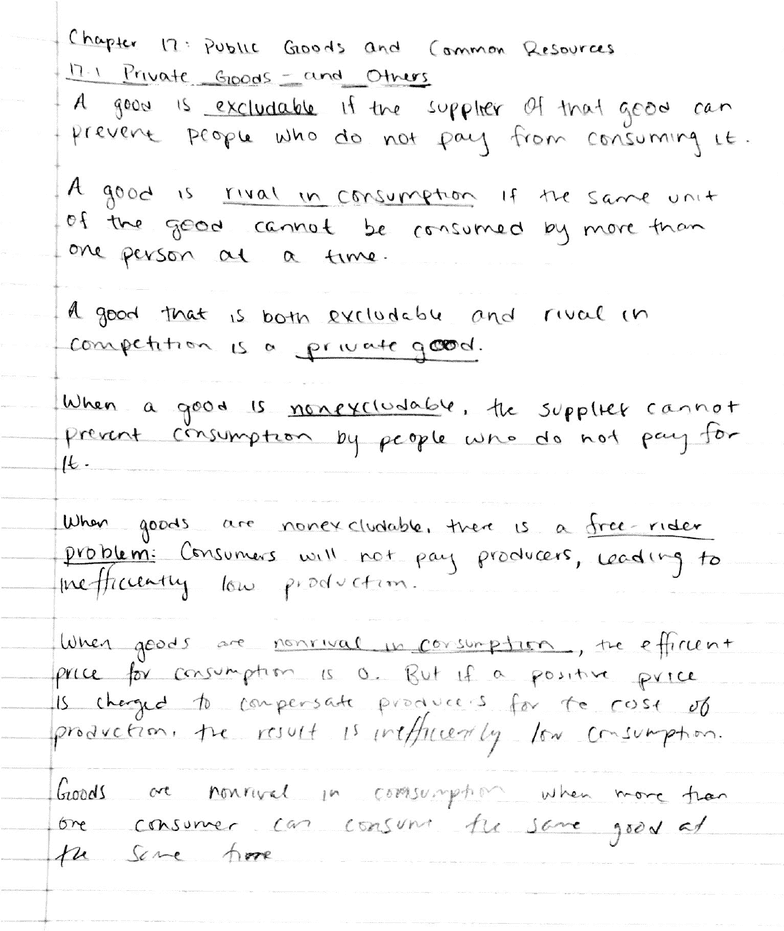 Chapter 17: Public Goods and Common Resources
17.1 Private Goods - and Others
A good is excludable if the supplier of that good can
prevent people who do not pay from consuming it.
A good is rival in consumption if the same unit
of the good cannot be consumed by more than
one person at a time.
A good that is both excludable and rival in
competition is a private good.
When a good is nonexcludable, the supplier cannot
prevent consumption by people who do not pay for
it.
When goods are nonexcludable, there is a free-rider
problem: Consumers will not pay producers, leading to
inefficiently low production.
When goods are nonrival in consumption, the efficient
price for consumption is 0. But if a positive price
is charged to compensate producers for te cost of
production, the result is inefficiently low consumption.
Goods are nonrival in consumption when more than
one consumer can consume the same good at
the same time